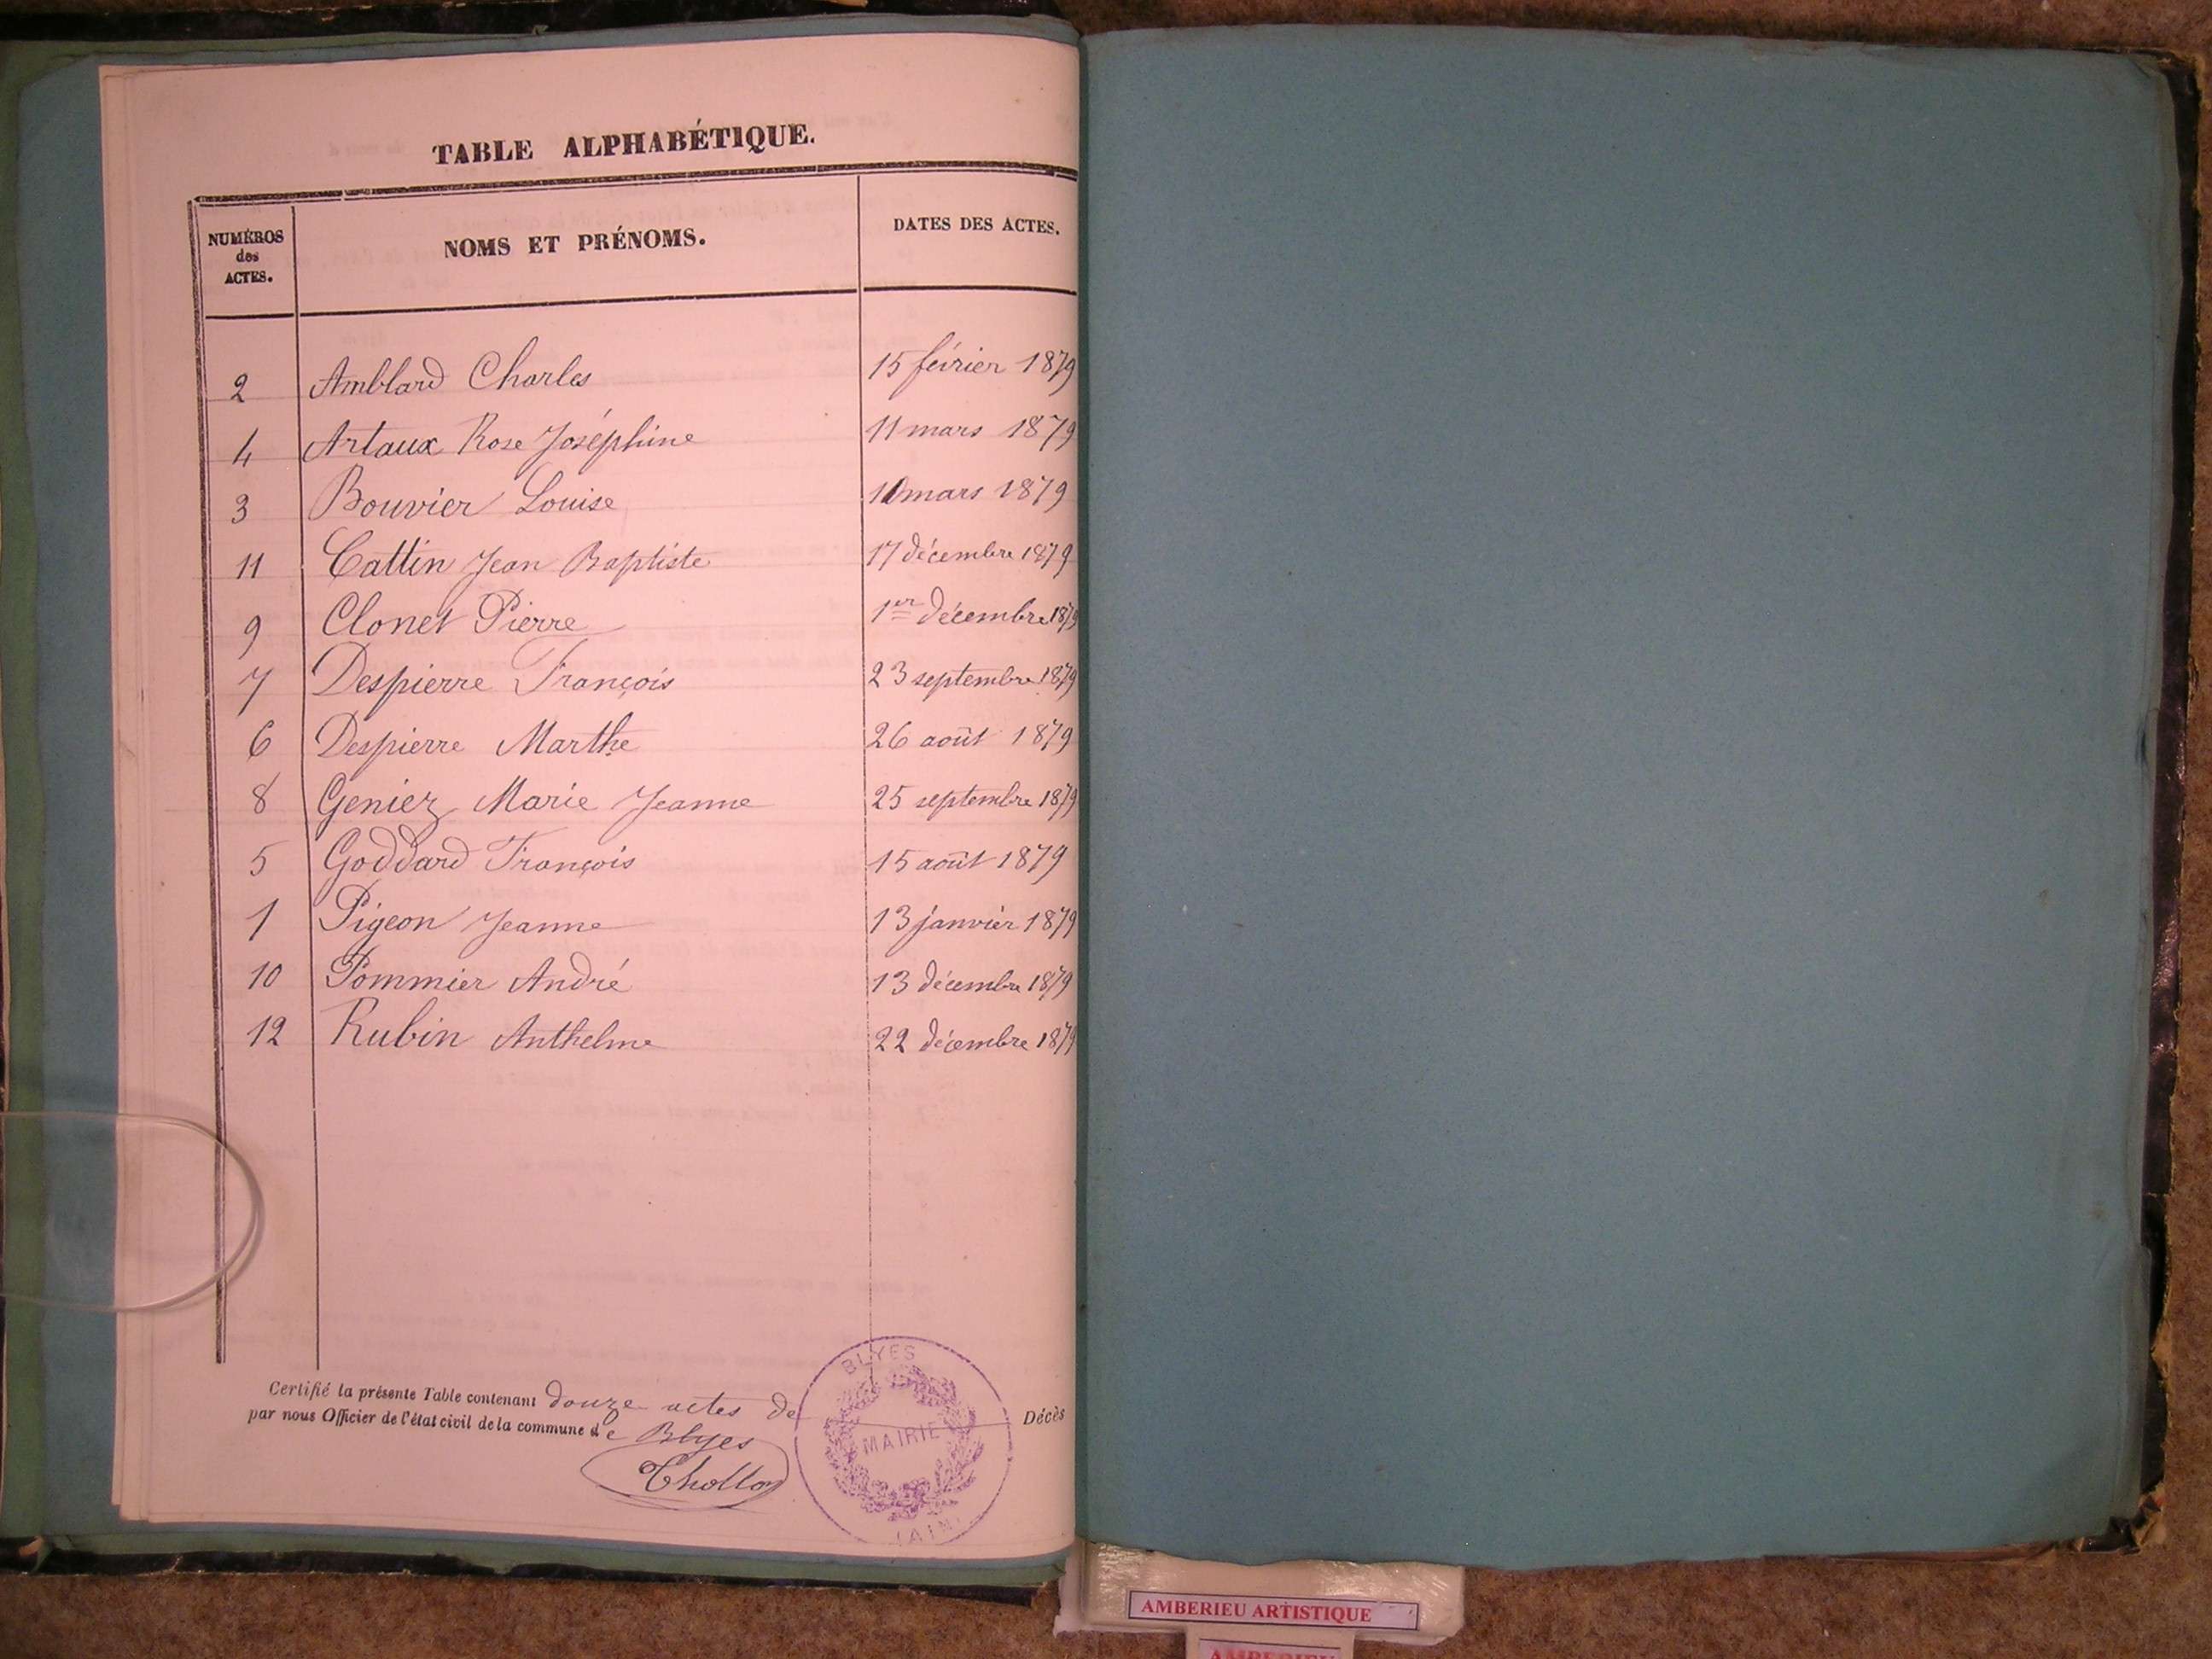 TABLE ALPHABÉTIQUE.
NUMÉROS des ACTES. NOMS ET PRÉNOMS. DATES DES ACTES.
2 Amblard Charles 15 février 1879
4 Artaux Rose Joséphine 11 mars 1879
3 Bouvier Louise 10 mars 1879
11 Cattin Jean Baptiste 17 décembre 1879
9 Clonet Pierre 1er décembre 1879
7 Despierre François 23 septembre 1879
6 Despierre Marthe 26 août 1879
8 Geniez Marie Jeanne 25 septembre 1879
5 Goddard François 15 août 1879
1 Pigeon Jeanne 13 janvier 1879
10 Pommier André 13 décembre 1879
12 Rubin Anthelme 22 décembre 1879
Certifié la présente Table contenant douze actes de Décès
par nous Officier de l'état civil de la commune de Blyes
Chollo
BLYES
MAIRIE
(AIN)
AMBERIEU ARTISTIQUE
AMBERIEU